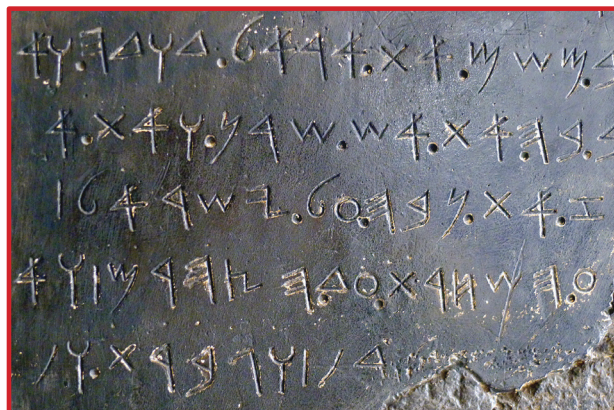 𐤌𐤔𐤌.𐤀𐤕.𐤀𐤓𐤀𐤋.𐤃𐤅𐤃𐤄.𐤅𐤀
𐤁.𐤁𐤄.𐤀𐤕.𐤀𐤔.𐤔𐤓𐤍.𐤅𐤀𐤕.𐤀
𐤆.𐤀𐤕.𐤍𐤁𐤄.𐤏𐤋.𐤉𐤔𐤓𐤀𐤋|
𐤏.𐤄𐤔𐤇𐤓𐤕.𐤏𐤃.𐤄𐤑𐤄𐤓𐤌|𐤅𐤀
𐤓𐤍|𐤅𐤂𐤁𐤓𐤕.𐤅𐤂